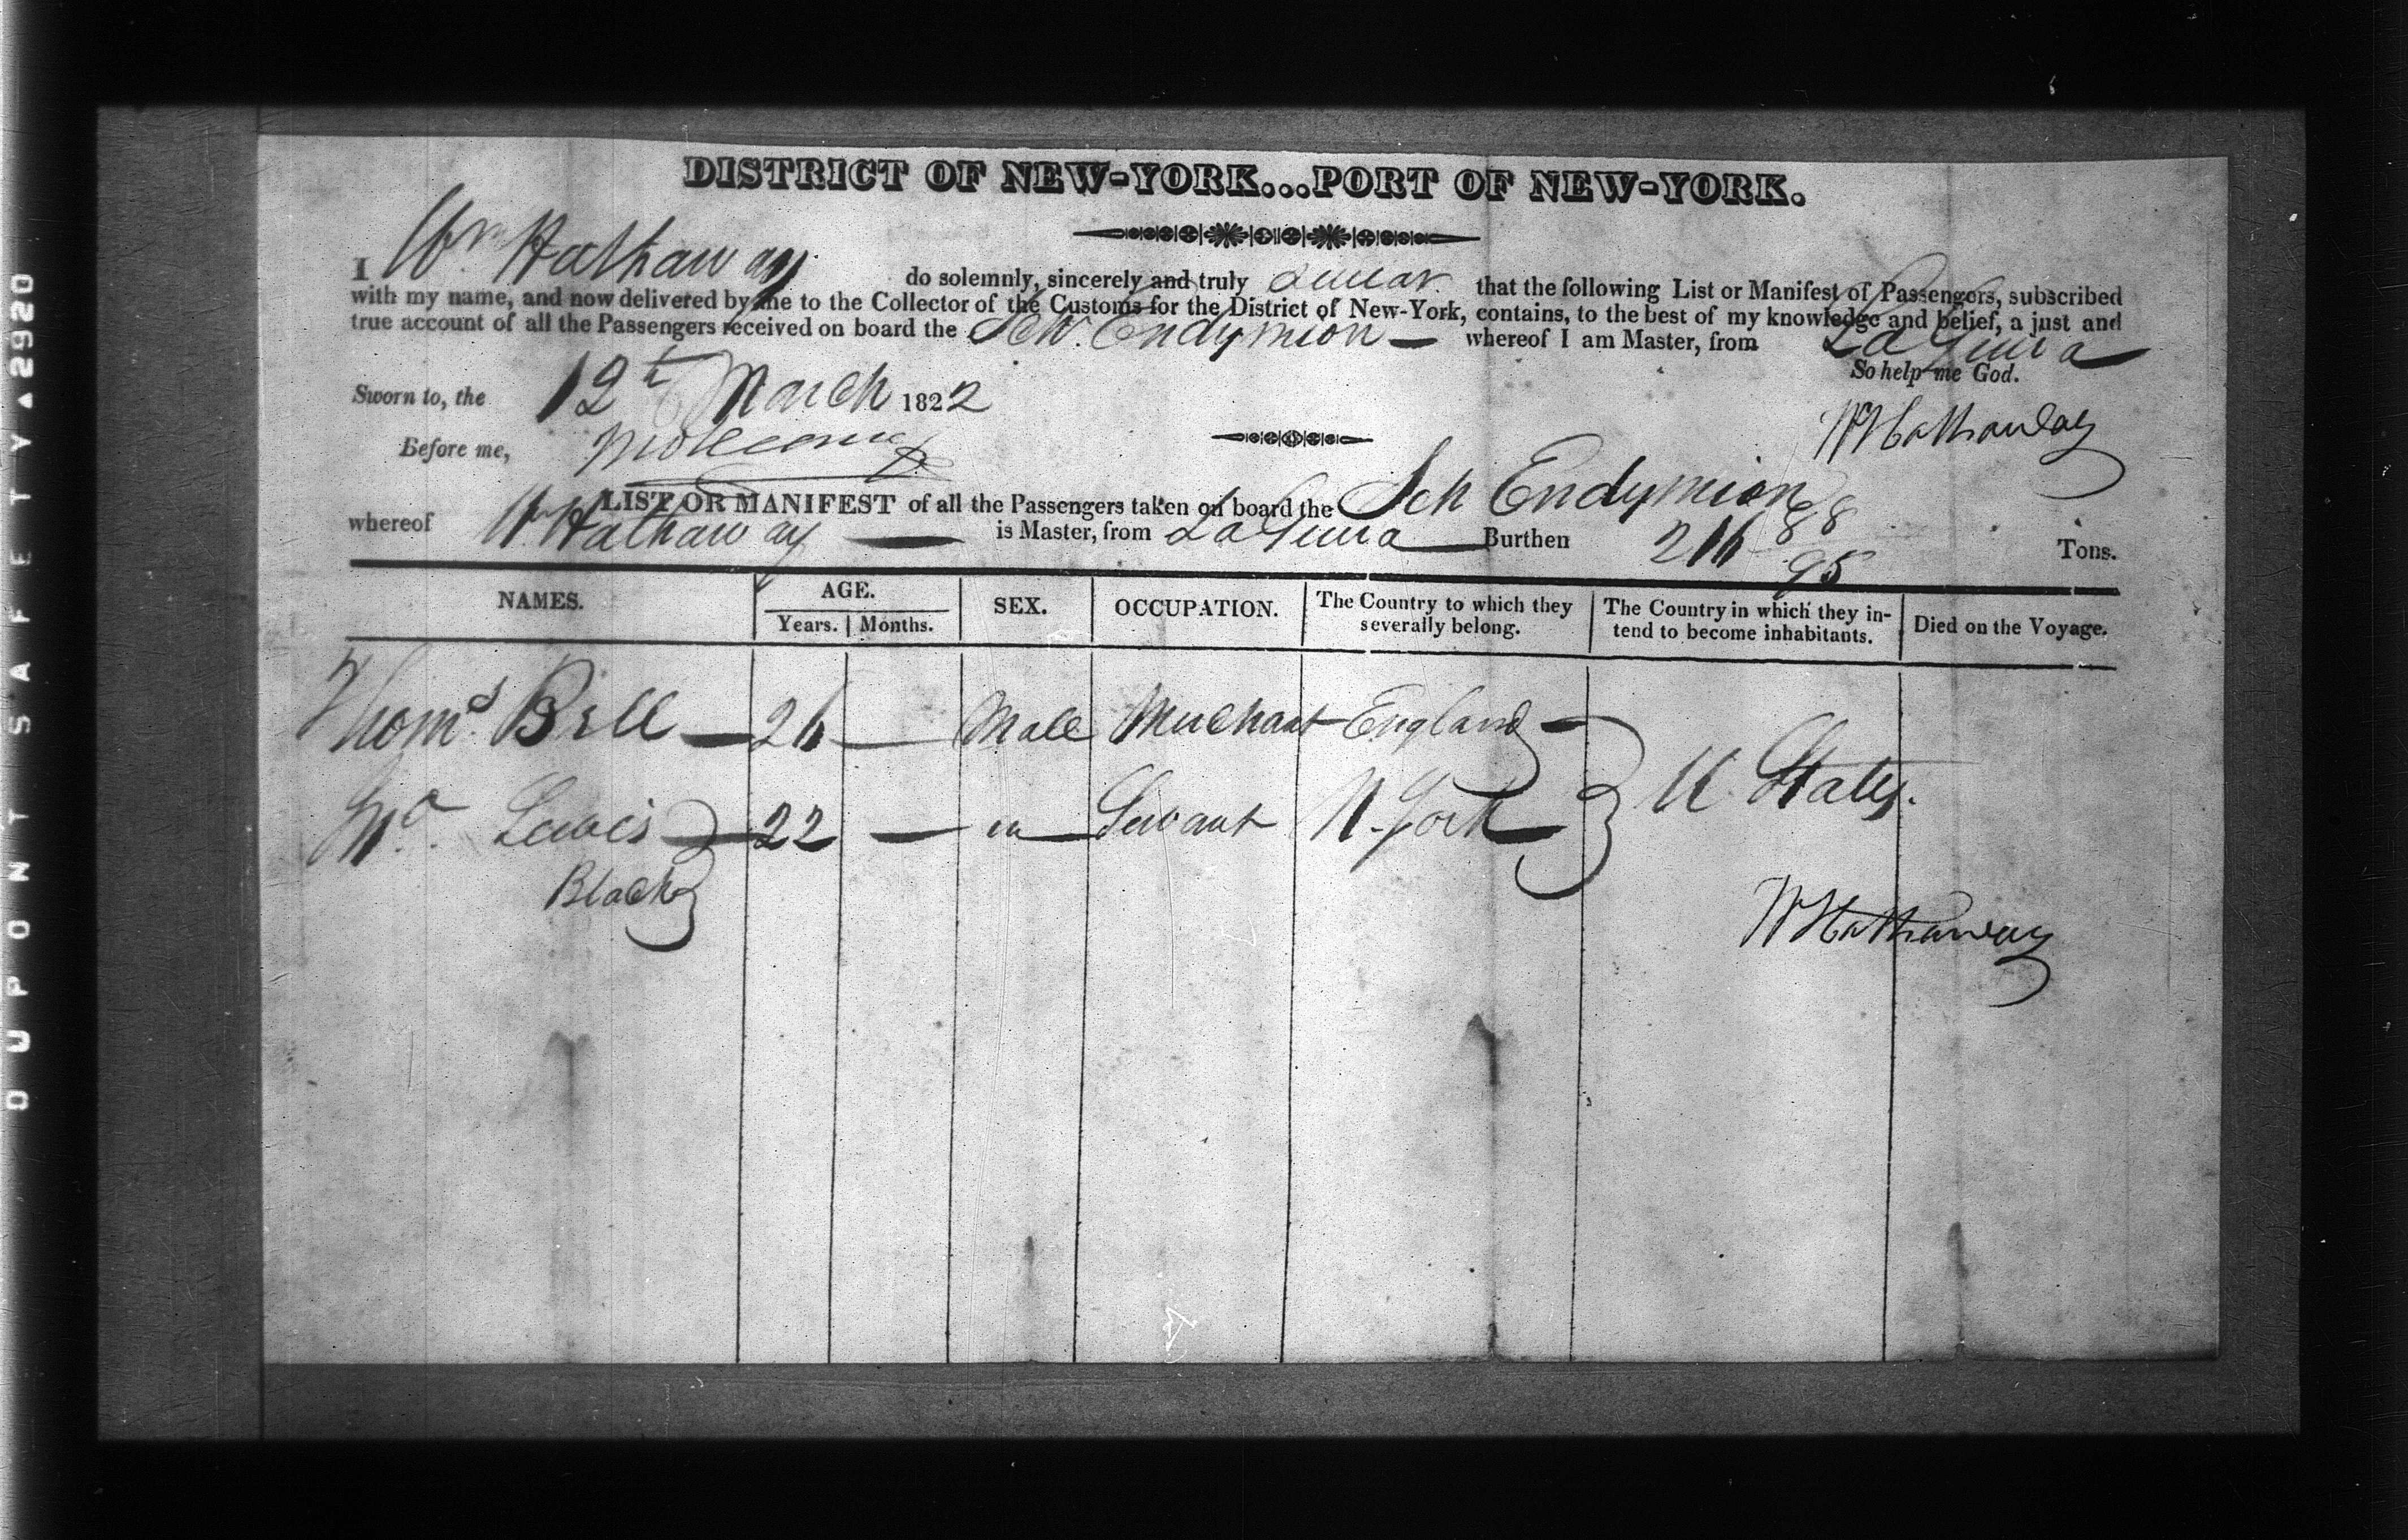 DISTRICT OF NEW-YORK...PORT OF NEW-YORK.
I Wm Hathaway do solemnly, sincerely and truly swear that the following List or Manifest of Passengers, subscribed
with my name, and now delivered by me to the Collector of the Customs for the District of New-York, contains, to the best of my knowledge and belief, a just and
true account of all the Passengers received on board the Schr. Endymion — whereof I am Master, from La Guira
So help me God.
Sworn to, the 12th March 1822
WHathaway
Before me,
LIST OR MANIFEST of all the Passengers taken on board the Sch Endymion
whereof Wm Hathaway — is Master, from La Guira Burthen 216 88/95 Tons.
NAMES. AGE. Years. Months. SEX. OCCUPATION. The Country to which they severally belong. The Country in which they intend to become inhabitants. Died on the Voyage.
Thoms Bell — 26 — Male Merchant England —
U States.
Lewis — 22 — m Servant N. York —
Black
WHathaway
DUPONT SAFETY A2920